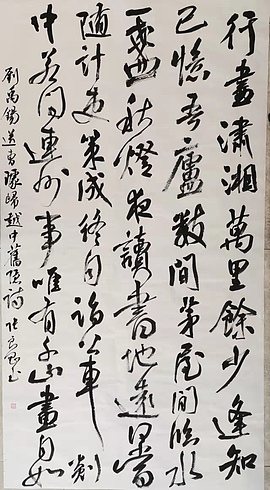 行盡瀟湘萬里餘少逢知
己憶吾廬數間茅屋閒臨水
一盞秋燈夜讀書地遠何當
隨計吏策成終自詣公車剡
中若問連州事唯有千山畫不如
劉禹錫送曹璩歸越中舊隱詩